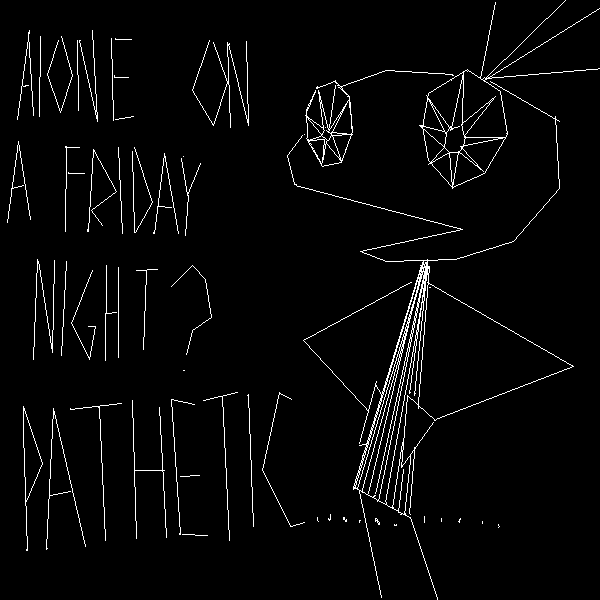 ALONE ON
A FRIDAY
NIGHT?
PATHETIC